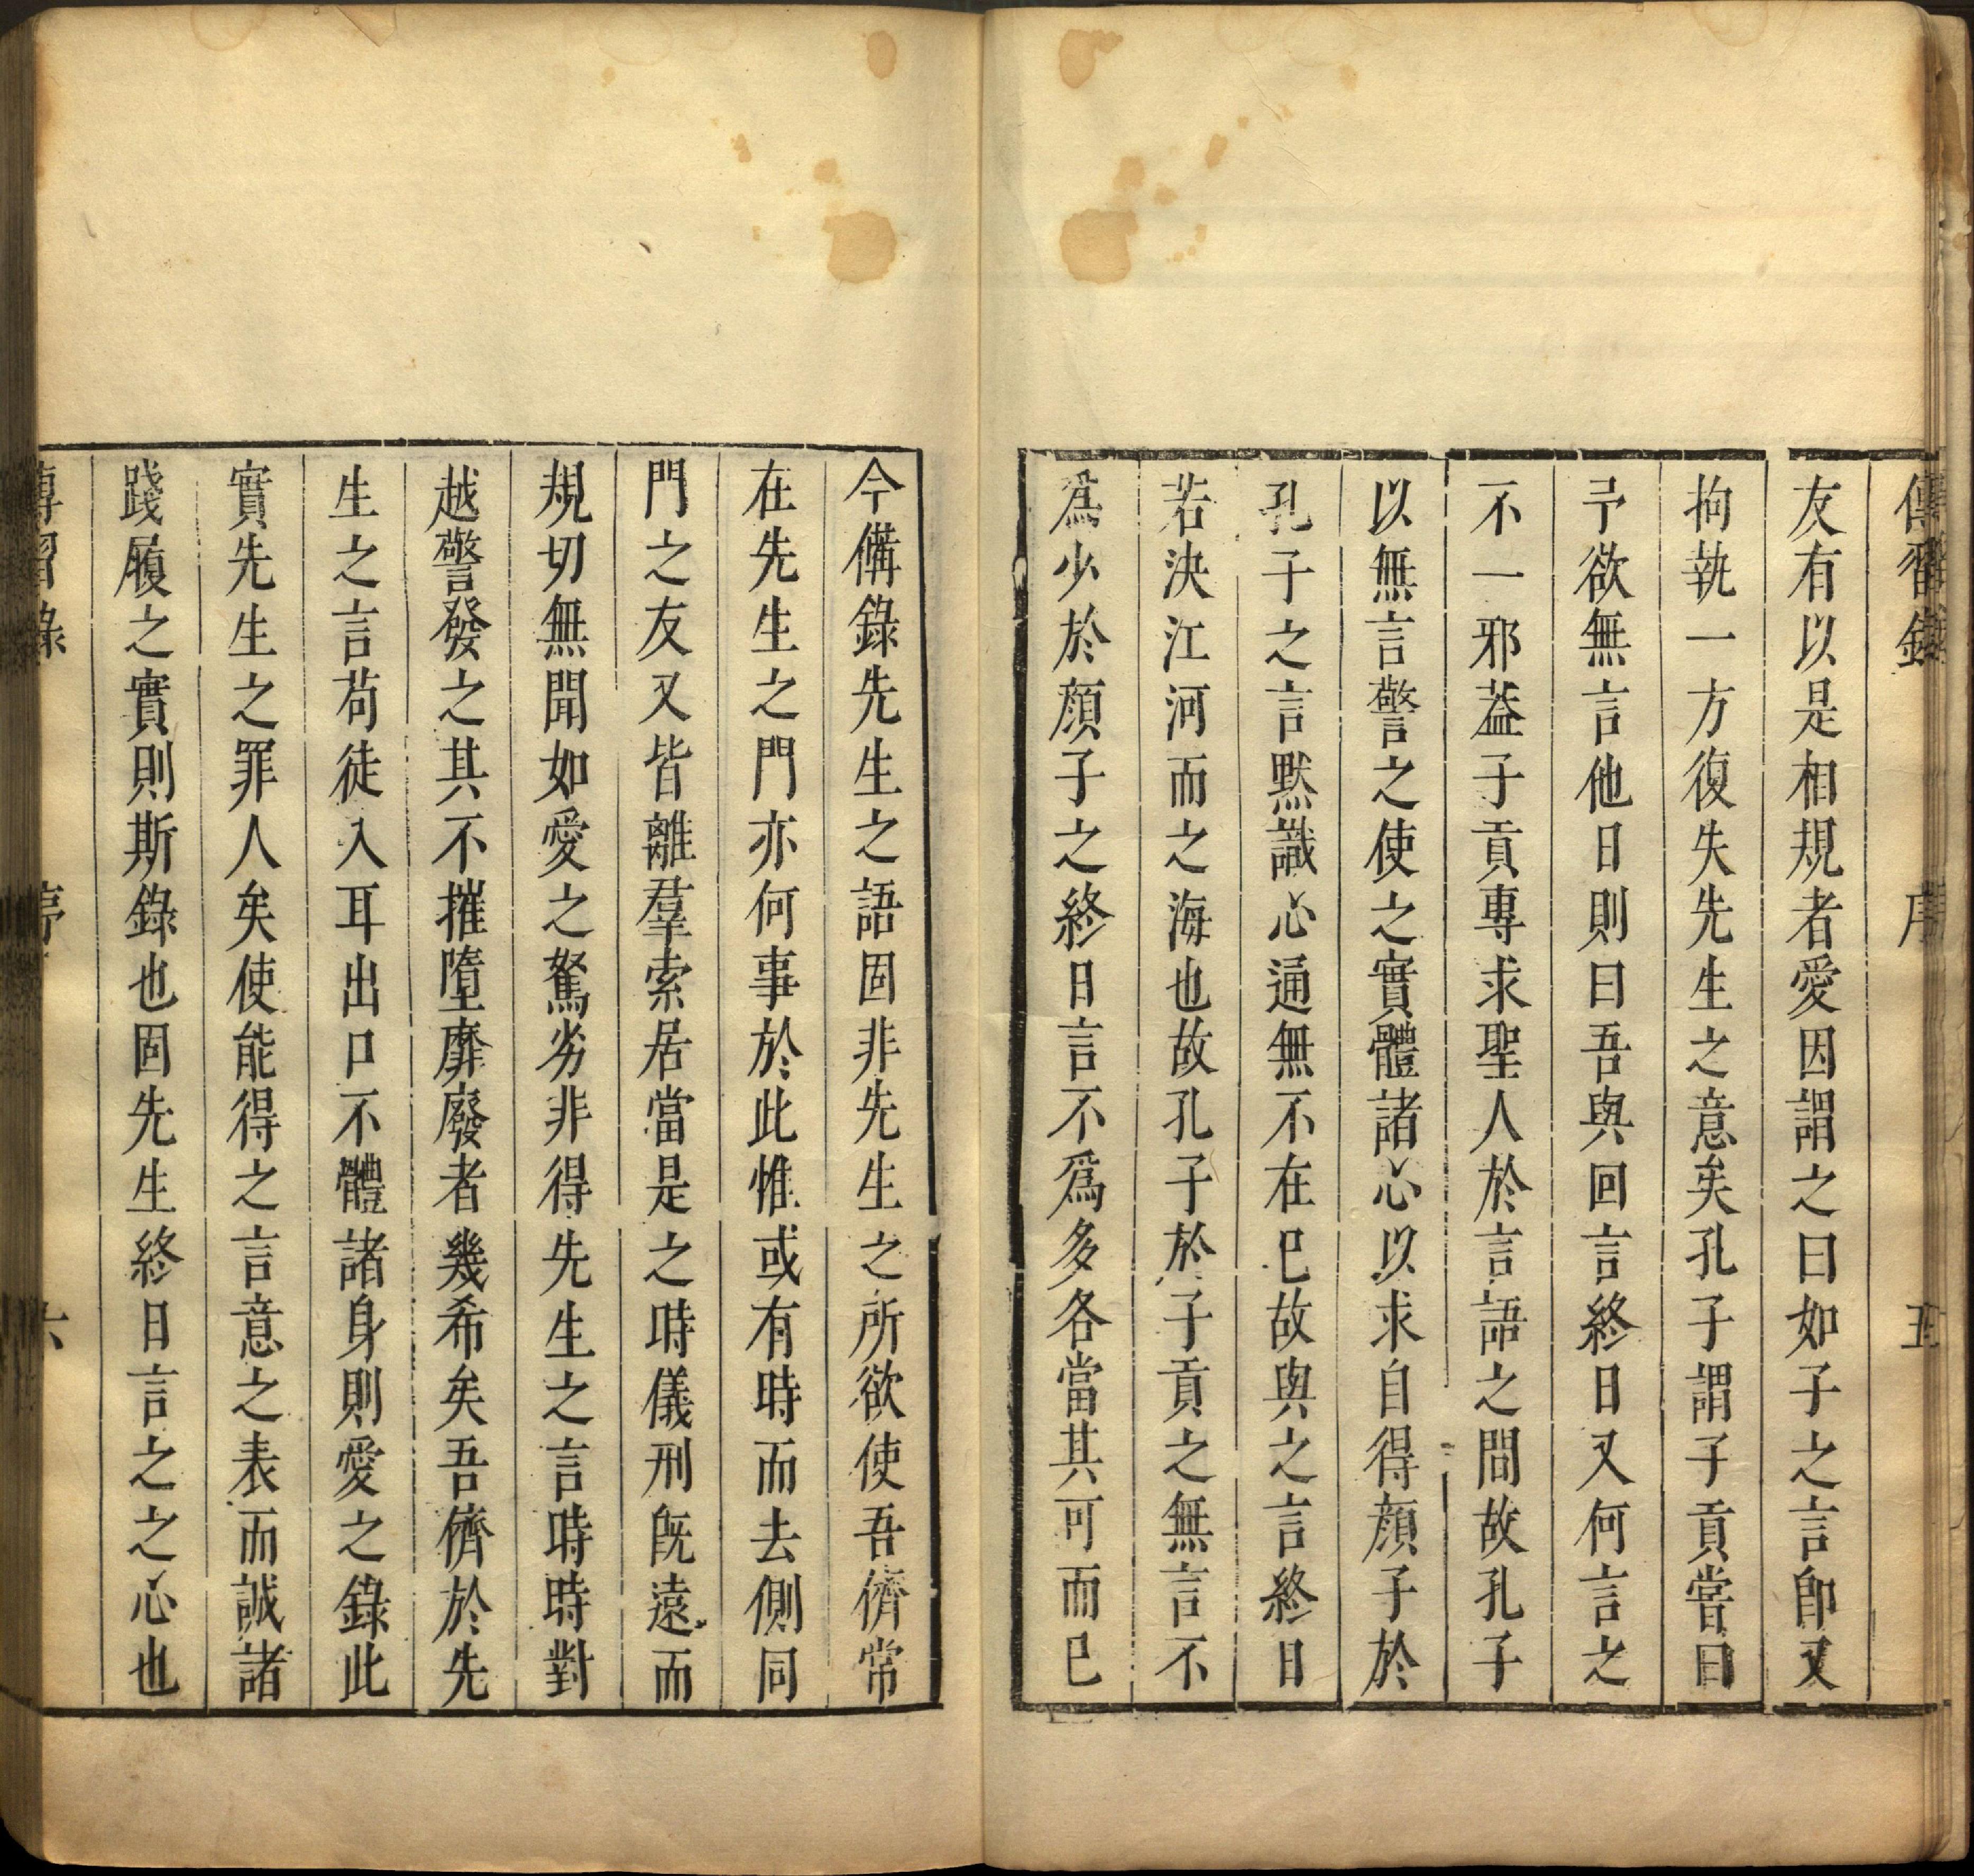 傳習錄 序 五
友有以是相規者愛因謂之曰如子之言卽又
拘執一方復失先生之意矣孔子謂子貢嘗曰
予欲無言他日則曰吾與回言終日又何言之
不一邪葢子貢專求聖人於言語之間故孔子
以無言警之使之實體諸心以求自得顔子於
孔子之言默識心通無不在已故與之言終日
若决江河而之海也故孔子於子貢之無言不
爲少於顔子之終日言不爲多各當其可而已
今備錄先生之語固非先生之所欲使吾儕常
在先生之門亦何事於此惟或有時而去側同
門之友又皆離羣索居當是之時儀刑旣遠而
規切無聞如愛之駑劣非得先生之言時時對
越警發之其不摧墮靡廢者幾希矣吾儕於先
生之言苟徒入耳出口不體諸身則愛之錄此
實先生之罪人矣使能得之言意之表而誠諸
踐履之實則斯錄也固先生終日言之之心也
傳習錄 序 六